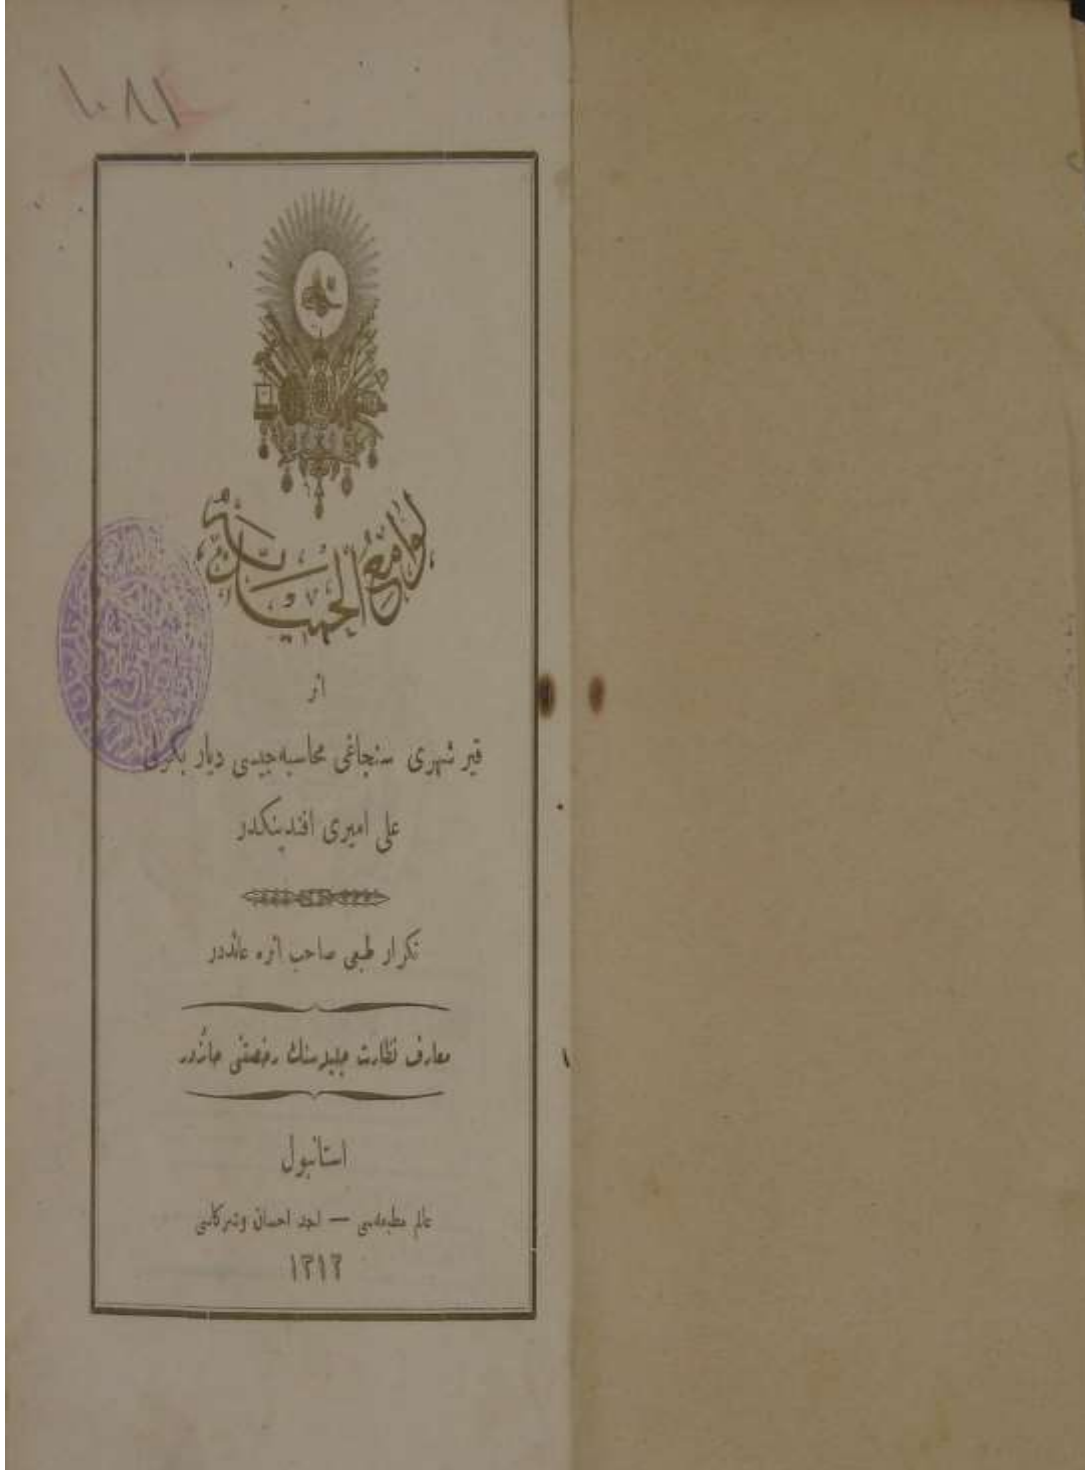 ١٠٨١
لوامع الحمیدیه
اثر
قیر شهری سنجاغی محاسبه‌جیسی دیار بکری
علی امیری افندینکدر
تکرار طبعی صاحب اثره عائددر
معارف نظارت جلیله‌سنك رخصتنی حائزدر
استانبول
عالم مطبعه‌سی — احمد احسان وشرکاسی
١٣١٢